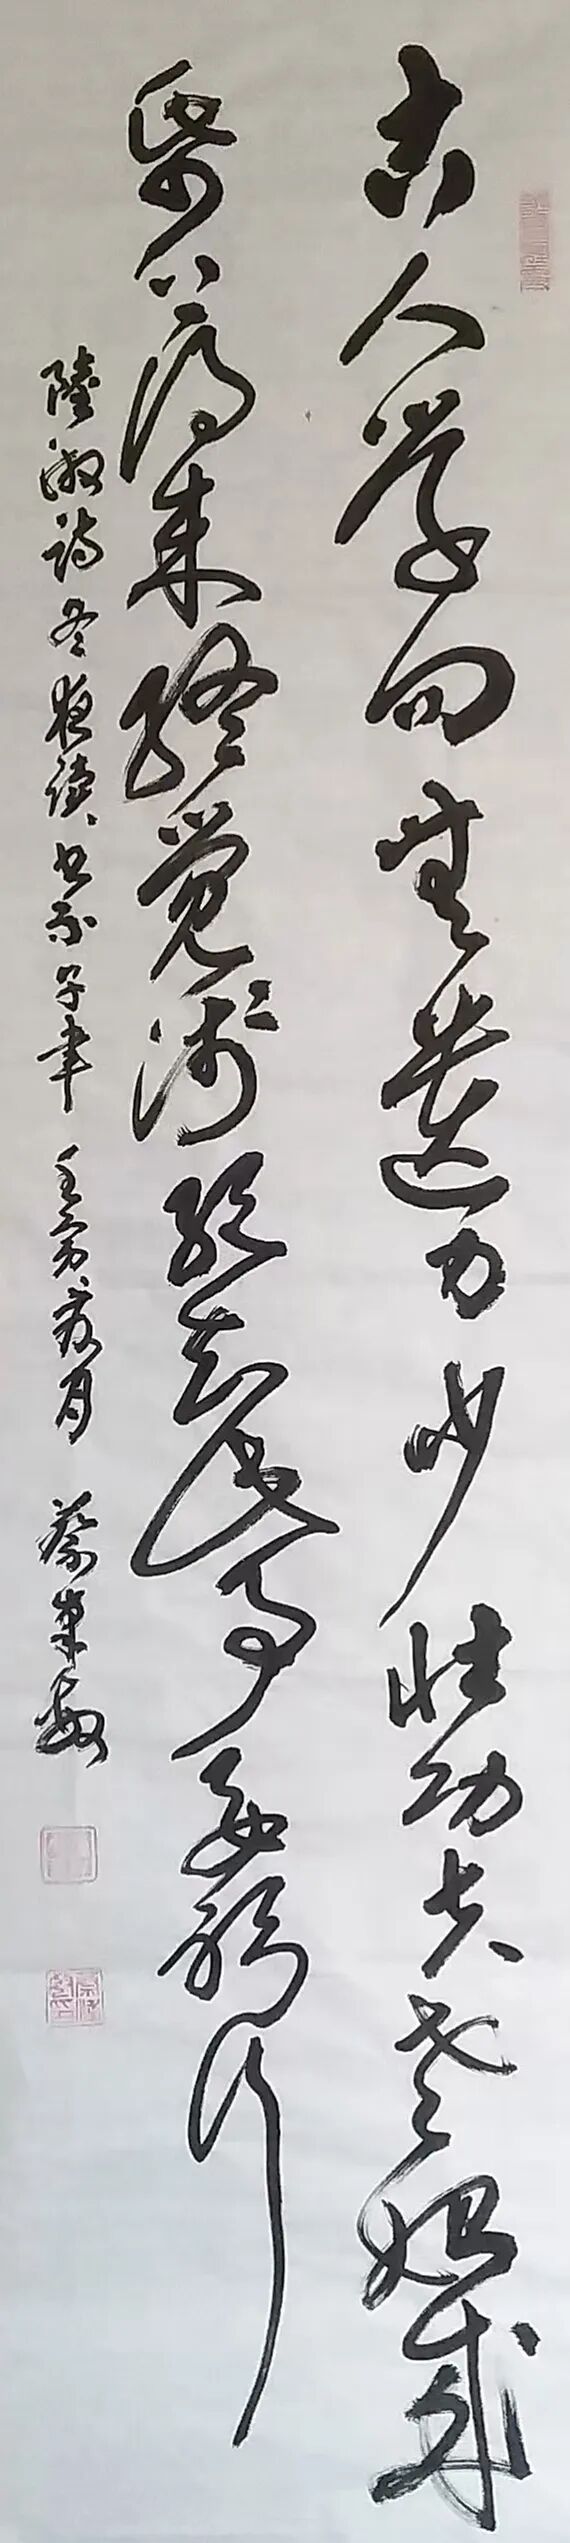 古人学问无遗力少壮功夫老始成
纸上得来终觉浅绝知此事要躬行
陆游诗冬夜读书示子聿 壬寅 月 蔡